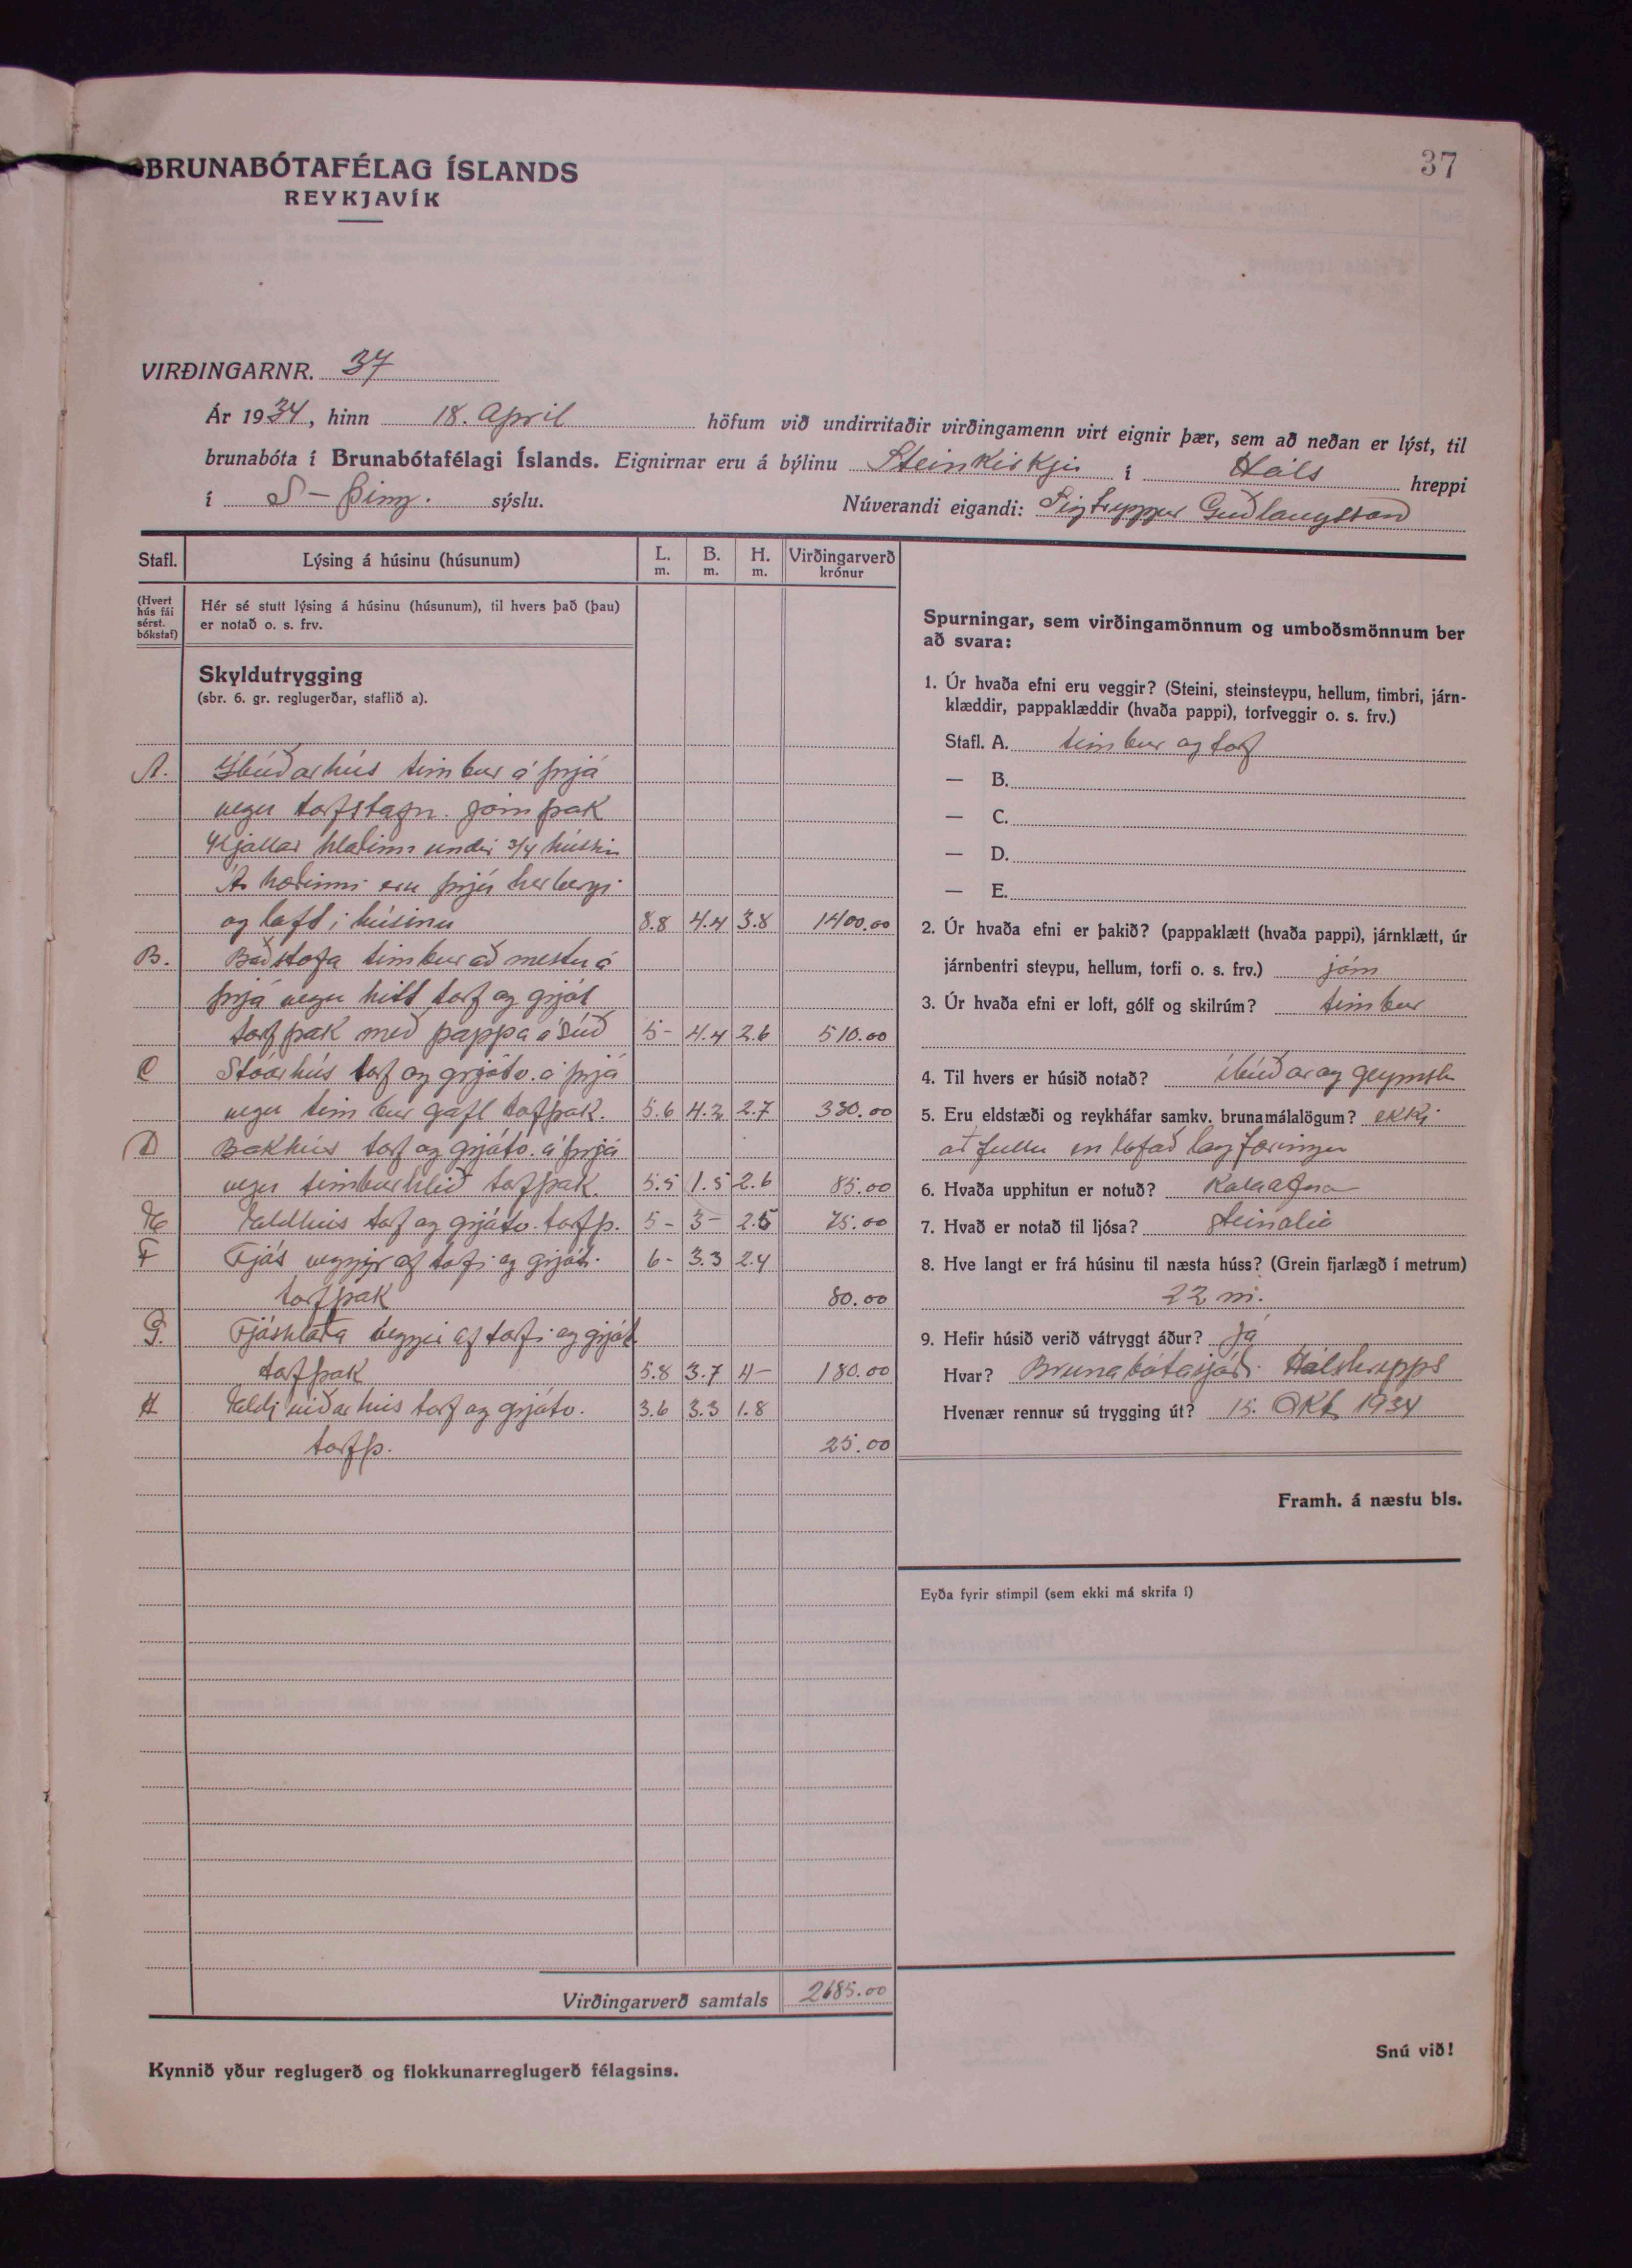 37
BRUNABÓTAFÉLAG ÍSLANDS
REYKJAVÍK
VIRÐINGARNR. 37
Ár 1934, hinn 18. April höfum við undirritaðir virðingamenn virt eignir þær, sem að neðan er lýst, til
brunabóta í Brunabótafélagi Íslands. Eignirnar eru á býlinu Steinkirkju í Háls hreppi
í S-Þing. sýslu. Núverandi eigandi: Sigtryggur Guðlaugsson
Stafl. Lýsing á húsinu (húsunum) L. m. B. m. H. m. Virðingarverð krónur
(Hvert hús fái sérst. bókstaf) Hér sé stutt lýsing á húsinu (húsunum), til hvers það (þau)
er notað o. s. frv.
Skyldutrygging
(sbr. 6. gr. reglugerðar, staflið a).
A. Íbúðarhús timbur á þrjá
vegu torfstafn. járn þak
Kjallar hlaðinn undir 3/4 húsin
Á hæðinni eru þrjú herbergi
og loft í húsinu 8.8 4.4 3.8 1400.00
B. Baðstofa timbur að mestu á
þrjá vegu hitt torf og grjót
torfþak með pappa á súð 5- 4.4 2.6 510.00
C Stóarhús torf og grjótv. á þrjá
vegu timbur gafl torfþak. 5.6 4.2 2.7 330.00
D Bakhús torf og grjótv. á þrjá
vegu timburhlið torfþak. 5.5 1.5 2.6 85.00
E Eldhús torf og grjótv. torfþ. 5- 3- 2.5 75.00
F Fjós veggir af torfi og grjóti. 6- 3.3 2.4
torfþak 80.00
G. Fjóshlaða veggir af torfi og grjót
torfþak 5.8 3.7 4- 180.00
H Eldiviðarhús torf og grjótv. 3.6 3.3 1.8
torfþ. 25.00
Virðingarverð samtals 2685.00
Kynnið yður reglugerð og flokkunarreglugerð félagsins.
Spurningar, sem virðingamönnum og umboðsmönnum ber
að svara:
1. Úr hvaða efni eru veggir? (Steini, steinsteypu, hellum, timbri, járn-
klæddir, pappaklæddir (hvaða pappi), torfveggir o. s. frv.)
Stafl. A. timbur og torf
— B.
— C.
— D.
— E.
2. Úr hvaða efni er þakið? (pappaklætt (hvaða pappi), járnklætt, úr
járnbentri steypu, hellum, torfi o. s. frv.) járn
3. Úr hvaða efni er loft, gólf og skilrúm? timbur
4. Til hvers er húsið notað? íbúðar og geymslu
5. Eru eldstæði og reykháfar samkv. brunamálalögum? ekki
að fullu en lofað lagfæringu
6. Hvaða upphitun er notuð? Kolaofna
7. Hvað er notað til ljósa? steinolía
8. Hve langt er frá húsinu til næsta húss? (Grein fjarlægð í metrum)
22 m.
9. Hefir húsið verið vátryggt áður? já
Hvar? Brunabótasjóði Hálshrepps
Hvenær rennur sú trygging út? 15. Okt 1934
Framh. á næstu bls.
Eyða fyrir stimpil (sem ekki má skrifa í)
Snú við!